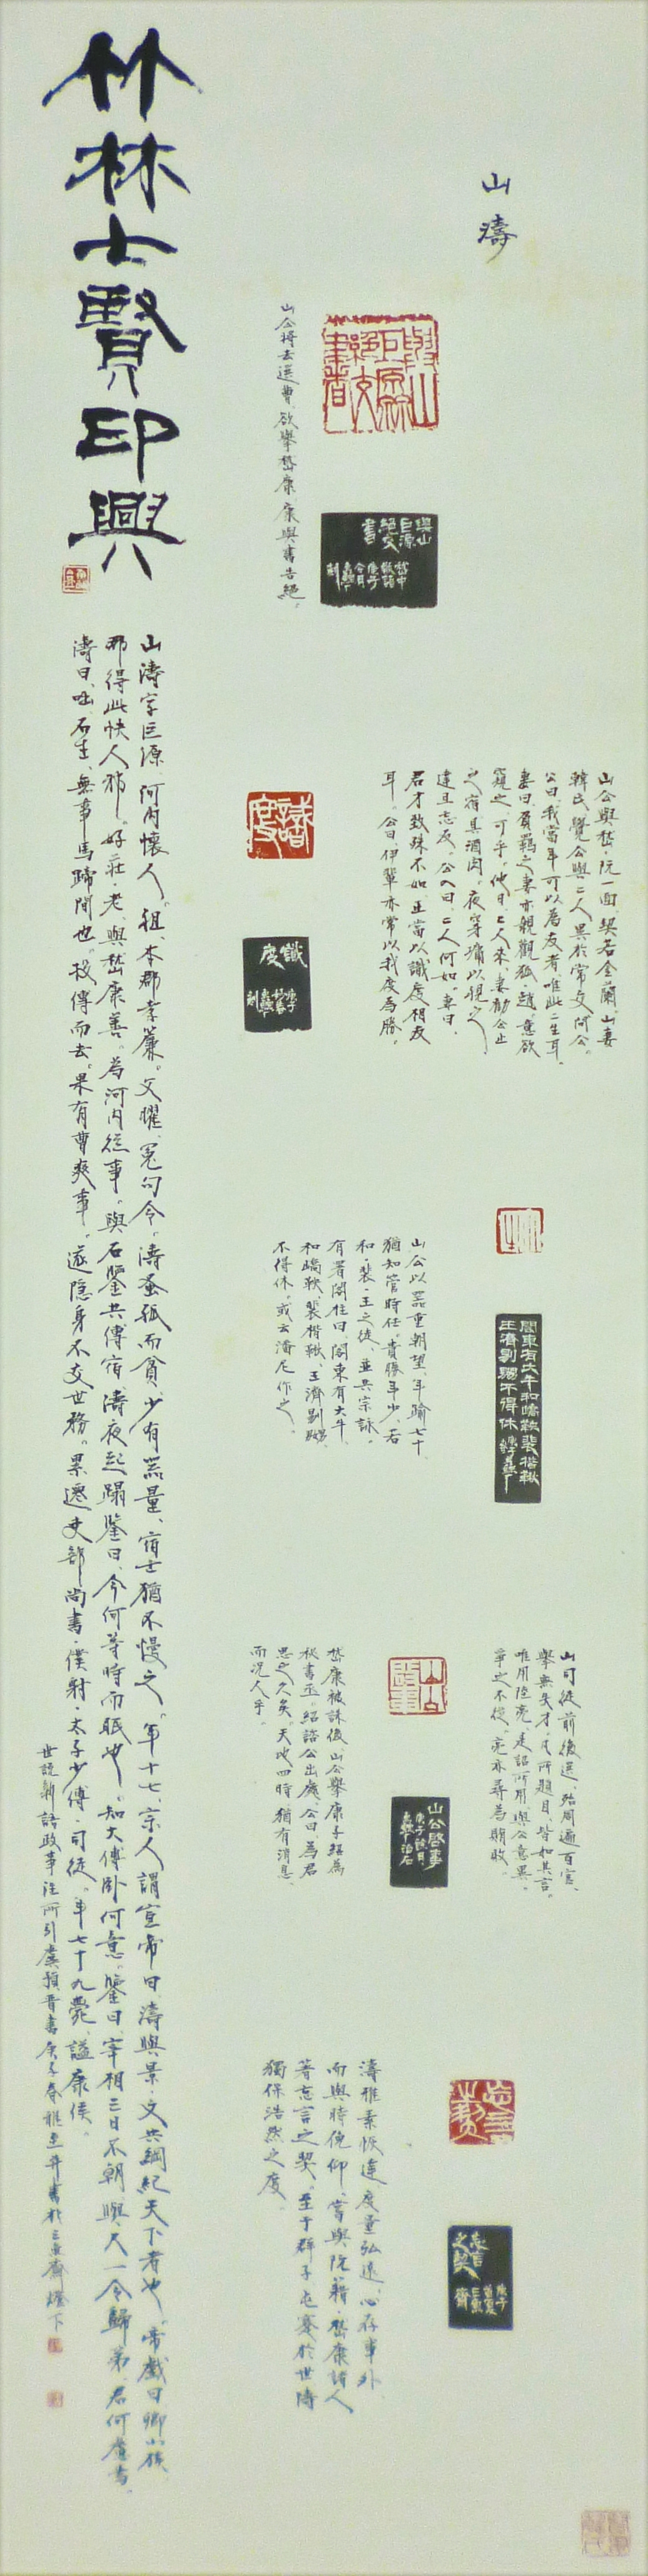 山濤
與山巨源絕交書
與山
巨源
絕交
書
山公將去選曹欲舉嵇康康與書告絕。
山公與嵇・阮一面契若金蘭山妻
韓氏覺公與二人異於常交問公。
公曰我當年可以為友者唯此二生耳。
妻曰負羈之妻亦親觀狐・趙意欲
窺之可乎。他日二人來妻勸公止
之宿具酒肉。夜穿墉以視之
達旦忘反。公入曰二人何如。妻曰。
君才致殊不如正當以識度相友
耳。公曰伊輩亦常以我度為勝。
識度
識
度
閣東有大牛和嶠鞅裴楷鞦
王濟剔嬲不得休
山公以器重朝望年踰七十
猶知管時任。貴勝年少若
和・裴・王之徒並共宗詠。
有署閣柱曰閣東有大牛
和嶠鞅裴楷鞦王濟剔嬲
不得休。或云潘尼作之。
山司徒前後選殆周遍百官
舉無失才凡所題目皆如其言。
唯用陸亮是詔所用與公意異
爭之不從。亮亦尋為賄敗。
山公啓事
山公啓事
嵇康被誅後山公舉康子紹為
秘書丞。紹諮公出處公曰為君
思之久矣。天地四時猶有消息
而況人乎。
忘言之契
忘言
之契
濤雅素恢達度量弘遠心存事外
而與時俛仰嘗與阮籍・嵇康諸人
著忘言之契。至于群子屯蹇於世濤
獨保浩然之度。
竹林七賢印興
山濤字巨源河內懷人。祖本郡孝廉。父曜冤句令。濤蚤孤而貧少有器量宿士猶不慢之。年十七宗人謂宣帝曰濤與景・文共綱紀天下者也。帝戲曰卿小族
那得此快人邪。好莊・老與嵇康善。為河內從事。與石鑒共傳宿濤夜起蹋鑒曰今何等時而眠也。知太傅臥何意。鑒曰宰相三日不朝與尺一令歸第君何慮焉。
濤曰咄石生無事馬蹄間也。投傳而去。果有曹爽事。遂隱身不交世務。累遷吏部尚書・僕射・太子少傅・司徒。年七十九薨謚康侯。
世說新語政事注所引虞預晋書庚子春雅至并書於三亟齋燈下